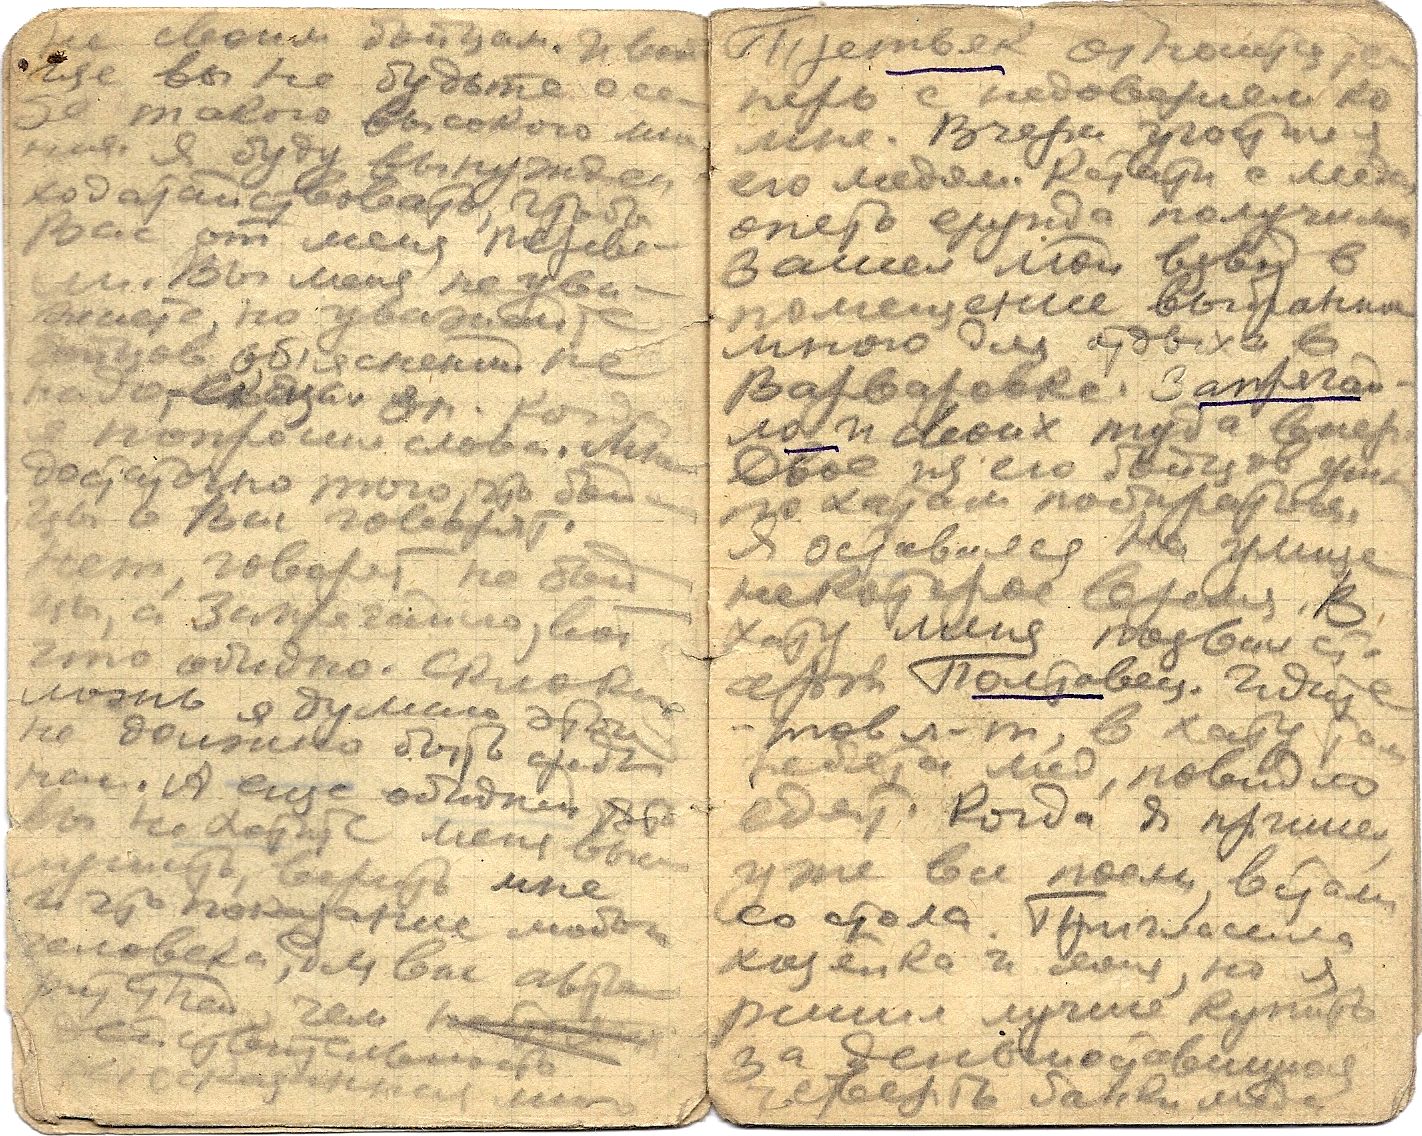 не своим бойцам. И вооб
ще вы не будьте о се-
бе такого высокого мне
ния. Я буду вынужден
ходатайствовать, чтобы
Вас от меня переве-
ли. Вы меня не ува-
жаете, но уважайте
бойцов. объяснений не
надо, – сказал он. Когда
я попросил слова. Мне
достаточно того, что бой-
цы о Вас говорят.
Нет, говорят не бой
цы, а Запрягайло, вот
что обидно. Склоки
ложь я думаю этой
не должно быть среди
нас. А еще обидней, что
вы не хотите меня выс
лушать, верить мне
и что показание любого
человека, для вас авто-
ритетней, чем
действительность
высказанная мной
Третьяк относится те
перь с недоверием ко
мне. Вчера угостил я
его медом. Кстати с медом
опять ерунда получилась
Зашел мой взвод в
помещение выбранное
мною для отдыха в
Варваровке. Запрягай-
ло и своих туда впер.
Двое из его бойцов ушли
по хатам побираться.
Я оставался на улице
некоторое время. В
хату меня позвал ст-
арый Полтавец. Идите
тов л-т, в хату там
ребята мед, повидло
едят. Когда я пришел,
уже все поели, встали
со стола. Пригласила
хозяйка и меня, но я
решил лучше купить
за деньги оставшуюся
четверть банки меда